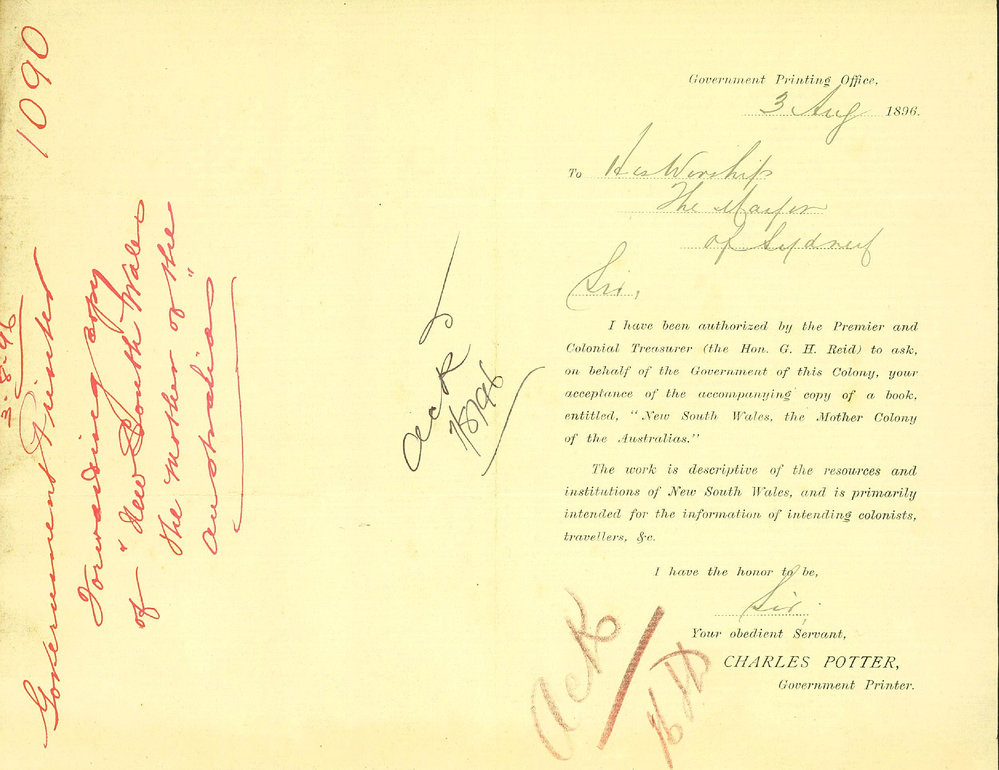 1090
3-8-96
Government Printer
Forwarding copy
of "New South Wales
The Mother of the
Australias"
Ack
Government Printing Office,
3 Aug 1896.
To His Worship
The Mayor
of Sydney
Sir,
I have been authorized by the Premier and
Colonial Treasurer (the Hon. G. H. Reid) to ask,
on behalf of the Government of this Colony, your
acceptance of the accompanying copy of a book,
entitled, "New South Wales, the Mother Colony
of the Australias."
The work is descriptive of the resources and
institutions of New South Wales, and is primarily
intended for the information of intending colonists,
travellers, &c.
I have the honor to be,
Sir,
Your obedient Servant,
CHARLES POTTER,
Government Printer.
Ack